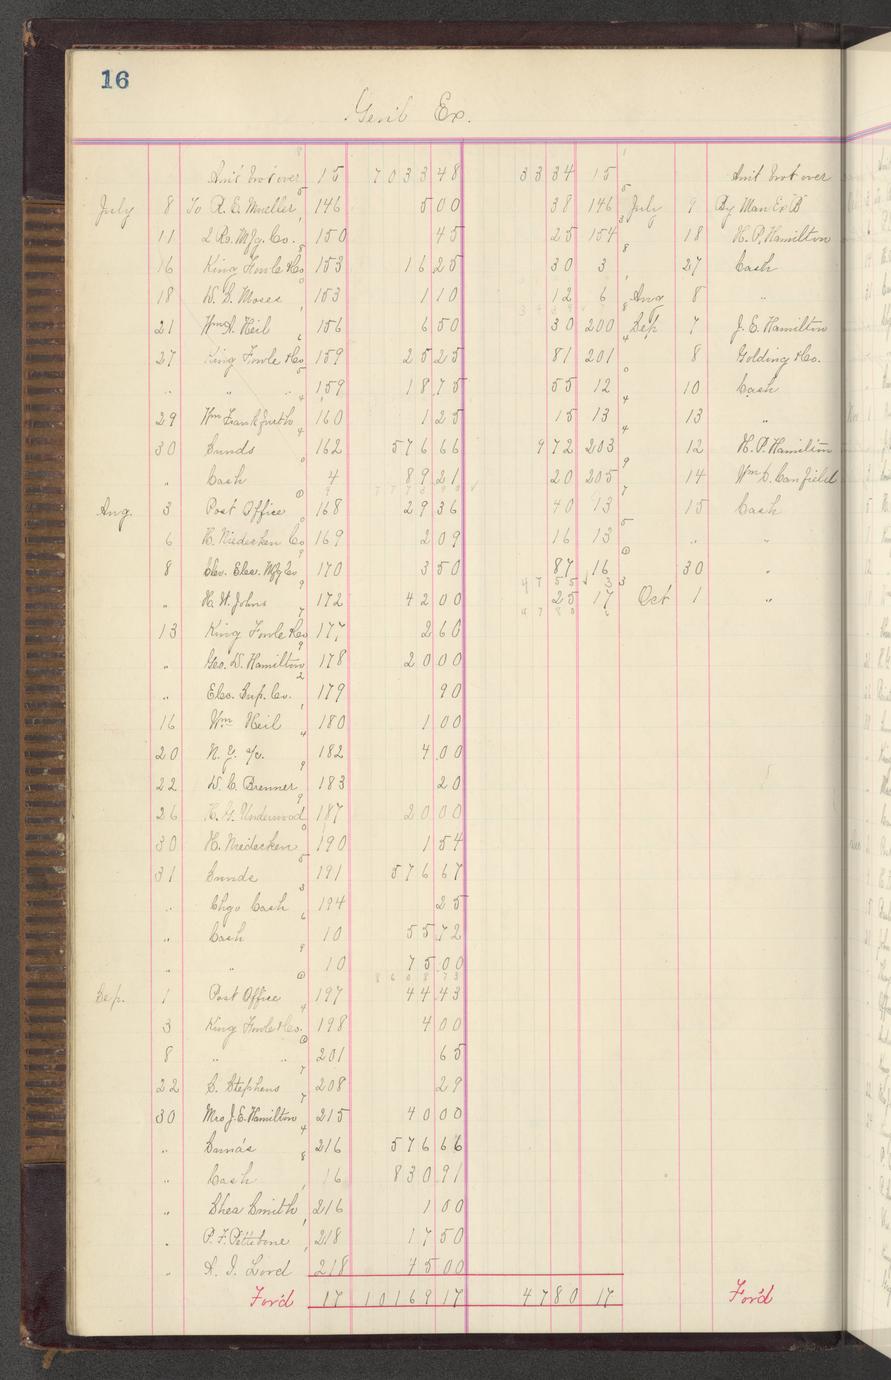 16
Genl Ex.
Am't brot over 15 7033 48 33 34 15 Am't brot over
July 8 To R. C. Mueller 146 5 00 38 146 July 9 By Man Ex B
11 L Ro. Mfg. Co. 150 45 25 154 18 H. P. Hamilton
16 King Fowle & Co 153 16 25 30 3 27 Cash
18 W. S. Moses 153 1 10 12 6 Aug 8 "
21 Wm A. Heil 156 6 50 30 200 Sep 7 J. E. Hamilton
27 King Fowle & Co 159 25 25 81 201 8 Golding & Co.
" " " 159 18 75 55 12 10 Cash
29 Wm Frankfurth 160 1 25 15 13 13 "
30 Sunds 162 576 66 9 72 203 12 H. P. Hamilton
" Cash 4 89 21 20 205 14 Wm D. Canfield
Aug. 3 Post Office 168 29 36 40 13 15 Cash
6 H. Niedecken Co 169 2 09 16 13 " "
8 Clev. Elec. Mfg Co 170 3 50 87 16 30 "
" H. W. Johns 172 42 00 25 17 Oct 1 "
13 King Fowle & Co 177 2 60
" Geo. W. Hamilton 178 20 00
" Elec. Sup. Co. 179 90
16 Wm Heil 180 1 00
20 N. Y. a/c. 182 4 00
22 W. C. Brenner 183 20
26 H. G. Underwood 187 20 00
30 H. Niedecken 190 1 54
31 Sunds 191 576 67
" Chgo Cash 194 25
" Cash 10 55 72
" " 10 75 00
8608 73
Sep. 1 Post Office 197 44 43
3 King Fowle & Co. 198 4 00
8 " " 201 65
22 C. Stephens 208 29
30 Mrs J. E. Hamilton 215 40 00
" Sunds 216 576 66
" Cash 16 830 91
" Chas Smith 216 1 00
" P. F. Pettibone 218 17 50
" A. I. Lord 218 45 00
For'd 17 10169 17 47 80 17 For'd